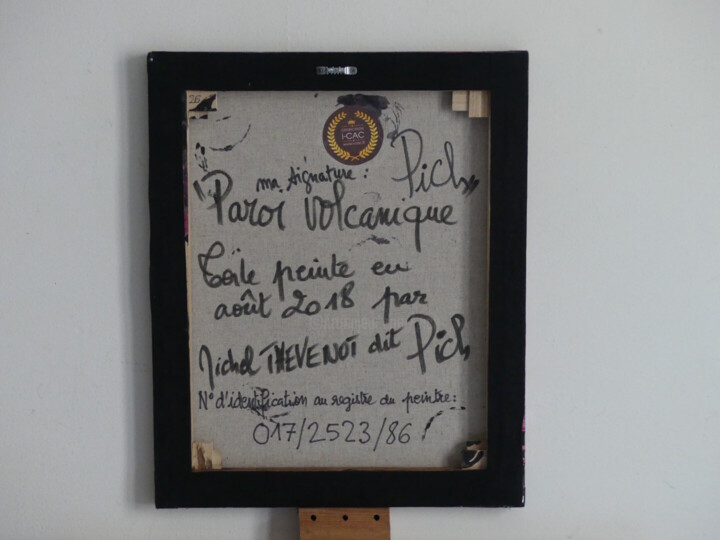 26
I-CAC
ma signature : Pich
"Paroi Volcanique"
Toile peinte en
août 2018 par
Michel THEVENOT dit Pich
N° d'identification au registre du peintre :
017/2523/86